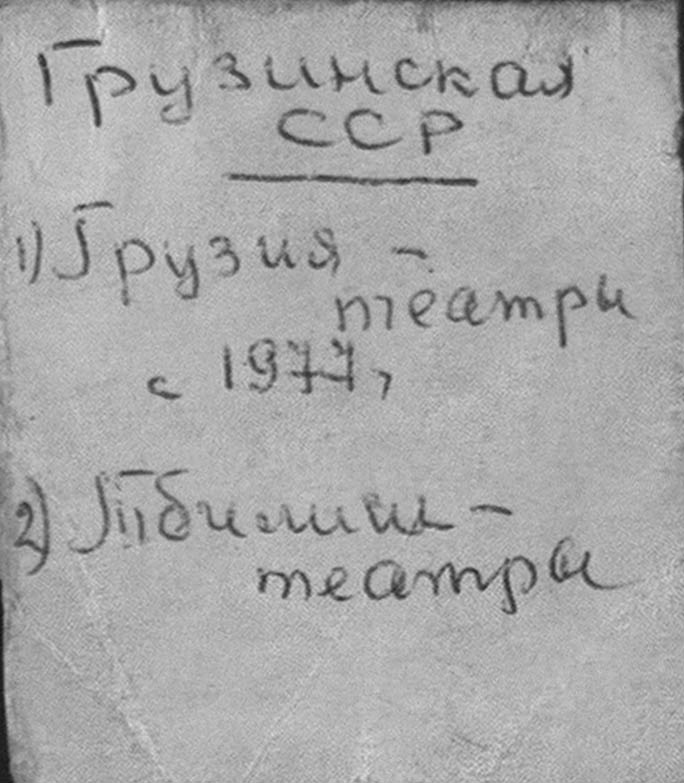 Грузинская
ССР
1) Грузия -
театры
с 1977,
2) Тбилиси -
театры